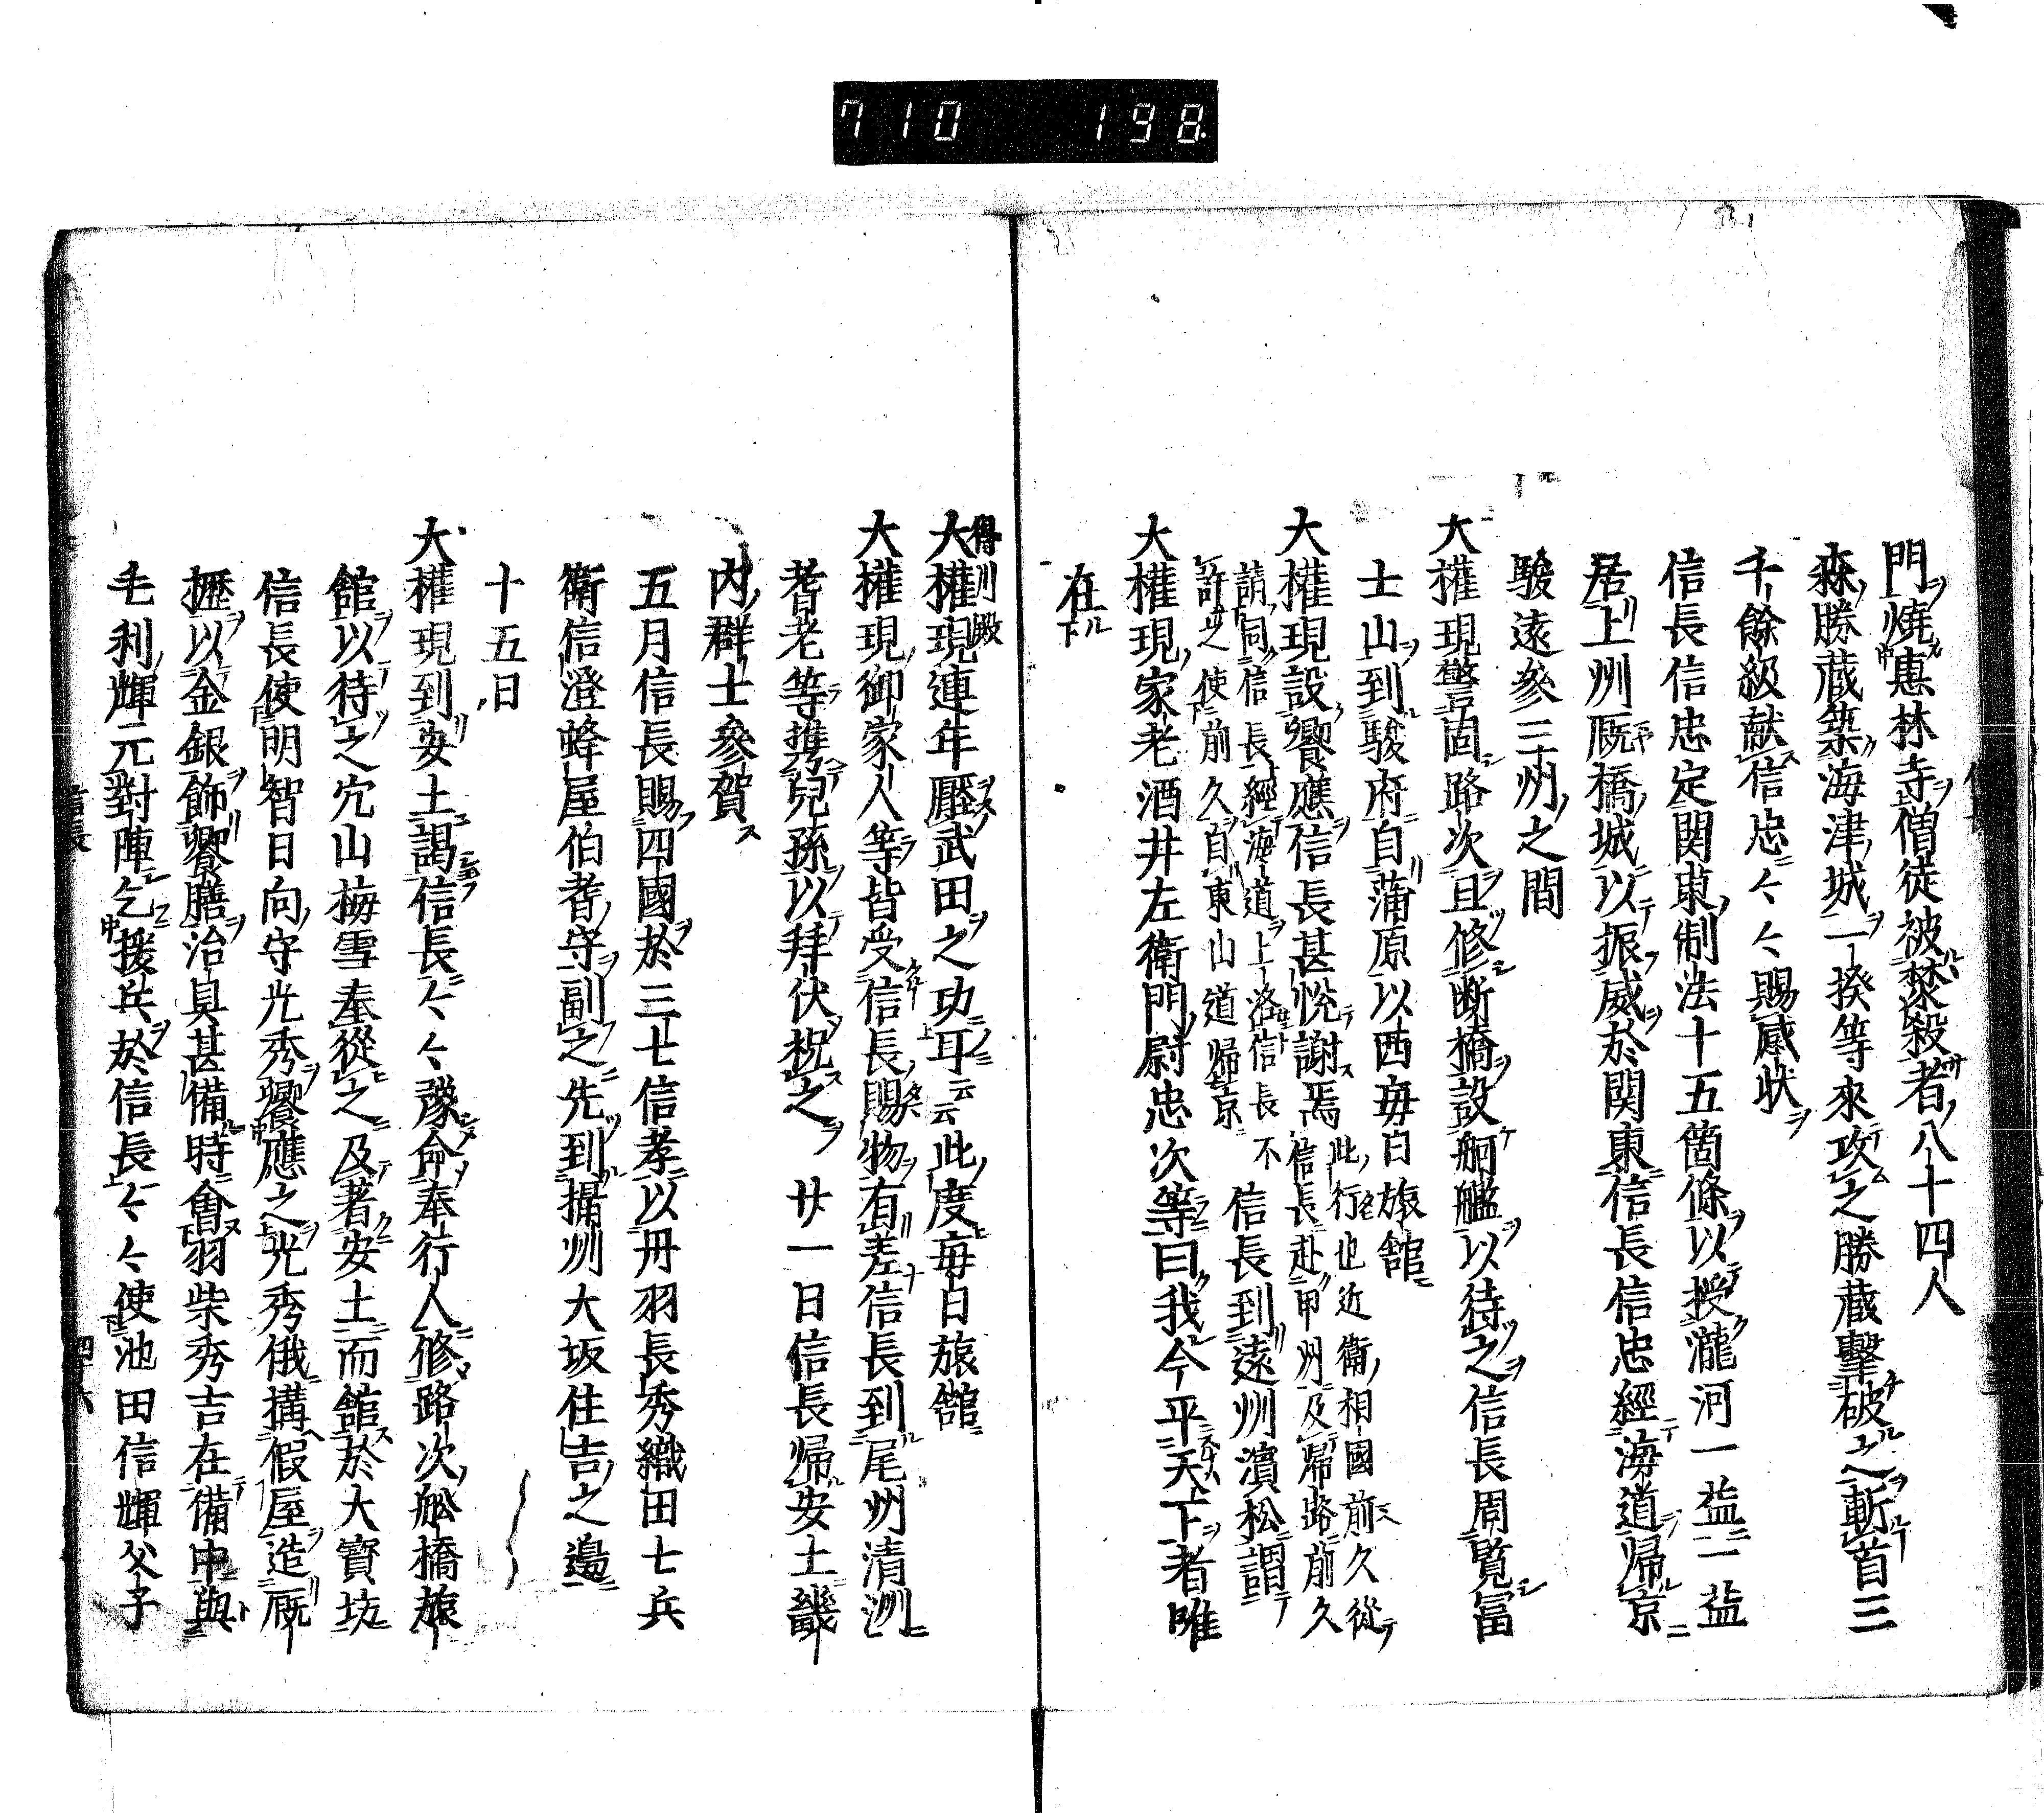 710 198.
門燒惠林寺僧徒被焚殺者八十四人
森勝蔵築海津城一揆等來攻之勝蔵擊破之斬首三
千餘級献信忠々々賜感状
信長信忠定関東制法十五箇條以授瀧河一益一益
居上州厩橋城以振威於関東信長信忠經海道帰京
駿遠參三州之間
大權現警固路次且修断橋設舸艦以待之信長周覧冨
士山到駿府自蒲原以西毎日旅舘
大權現設饗應信長甚悦謝焉此行也近衛相國前久從
信長赴甲州及帰路前久
請同信長經海道上洛信長不
許之使前久自東山道帰京
信長到遠州濱松謂
大權現家老酒井左衛門尉忠次等曰我今平天下者唯
在
得川殿
大權現連年壓武田之功耳云云此度毎日旅舘
大權現御家人等皆受信長賜物有差信長到尾州清洲
耆老等携兒孫以拜伏祝之廿一日信長帰安土畿
内群士參賀
五月信長賜四國於三七信孝以丹羽長秀織田七兵
衛信澄蜂屋伯耆守副之先到攝州大坂住吉之邊
十五日
大權現到安土謁信長々々豫命奉行人修路次舩橋旅
舘以待之穴山梅雪奉從之及著安土而舘於大寳坊
信長使明智日向守光秀饗應之光秀俄搆假屋造厩
攊以金銀飾饗膳治具甚備時會羽柴秀吉在備中與
毛利輝元對陣乞援兵於信長々々使池田信輝父子
信長
四十六